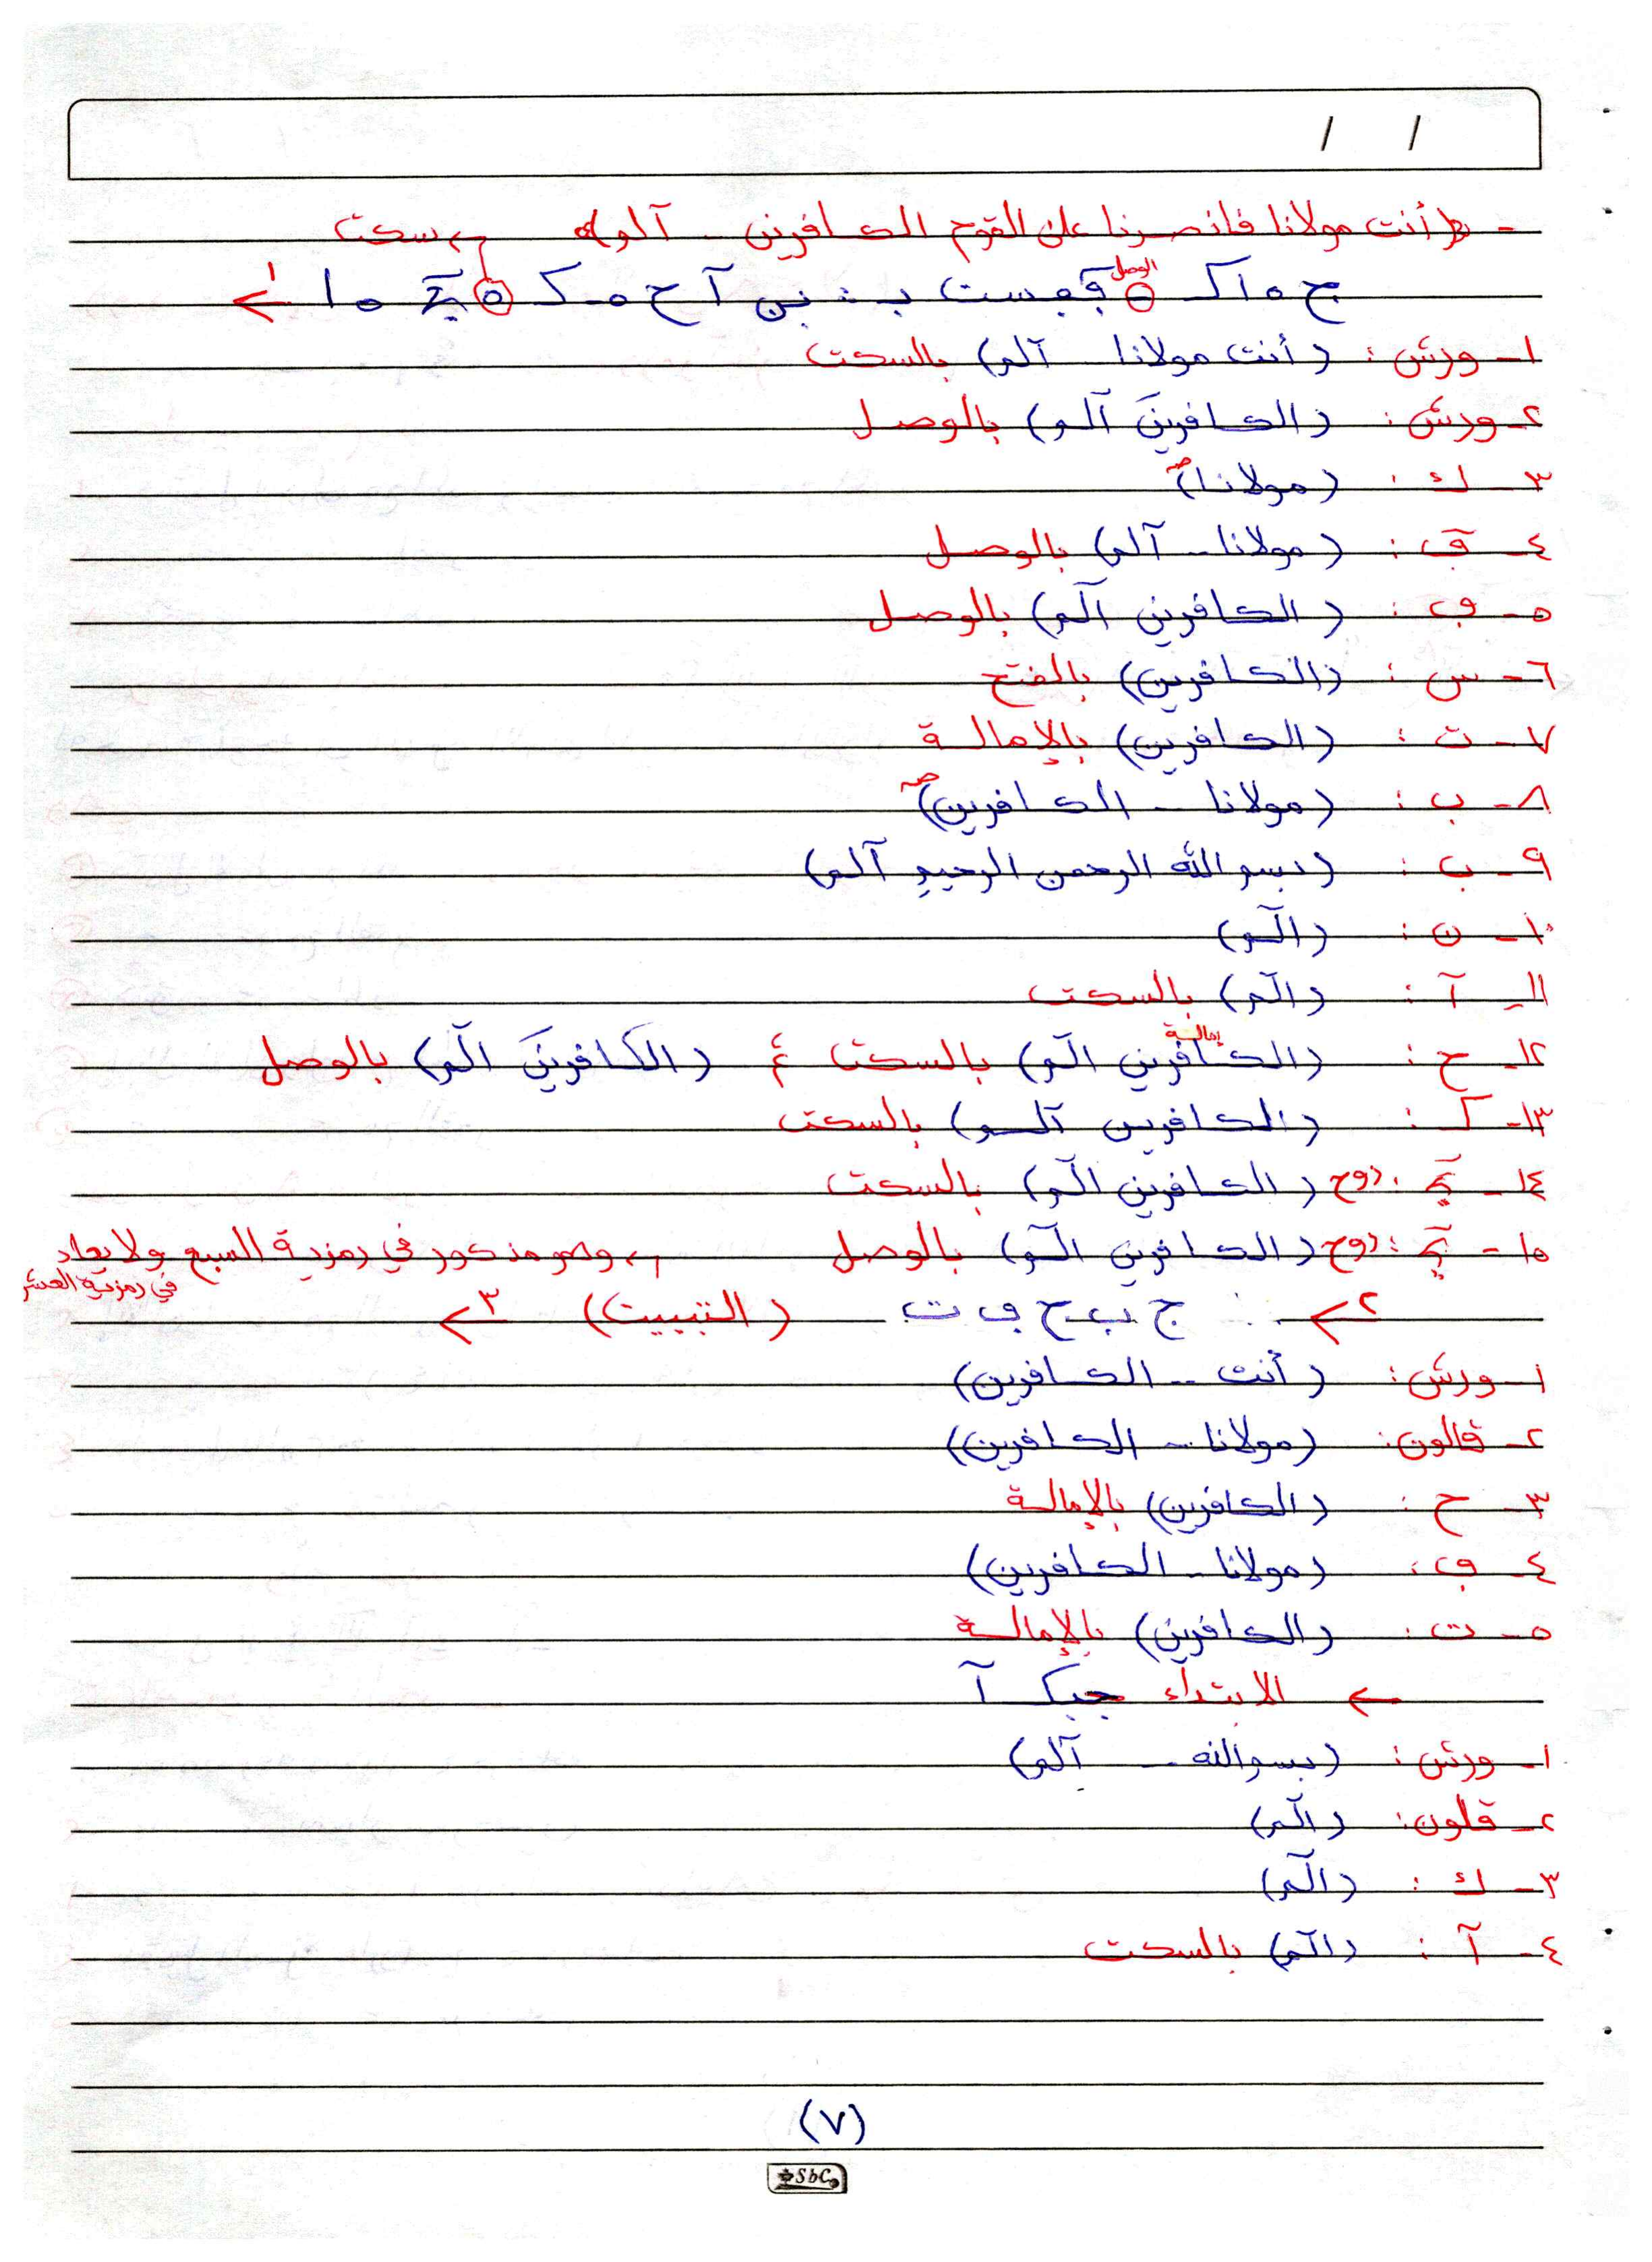 / /
- ﴿ أنت مولانا فانصرنا على القوم الكافرين - آلم ﴾ سكت
الوصل
ج ه ا ك ه ست ب ن آ ح ه ك ه ه ا ١
١- ورش : (أنت مولانا آلم) بالسكت
٢- ورش : (الكافرينَ آلم) بالوصل
٣- ك : (مولانا)
٤- ق : (مولانا - آلم) بالوصل
٥- ف : (الكافرين آلم) بالوصل
٦- س : (الكافرين) بالفتح
٧- ت : (الكافرين) بالإمالة
٨- ب : (مولانا - الكافرين) صه
٩- ب : (بسم الله الرحمن الرحيم آلم)
١٠- ن : (آلم)
١١- آ : (آلم) بالسكت
إمالة
١٢- ح : (الكافرين آلم) بالسكت ، (الكافرينَ آلم) بالوصل
١٣- ك : (الكافرين آلم) بالسكت
١٤- : روح (الكافرين آلم) بالسكت
١٥- : روح (الكافرين آلم) بالوصل وهو مذكور في رمزية السبع ولا يعاد
في رمزية العشر
٢ ج ب ح ف ت (التبييت) ٣
١- ورش : (أنت - الكافرين)
٢- قالون : (مولانا - الكافرين)
٣- ح : (الكافرين) بالإمالة
٤- ف : (مولانا - الكافرين)
٥- ت : (الكافرين) بالإمالة
الابتداء جبك آ
١- ورش : (بسم الله - آلم)
٢- قلون : (آلم)
٣- ك : (آلم)
٤- آ : (آلم) بالسكت
(٧)
SbC